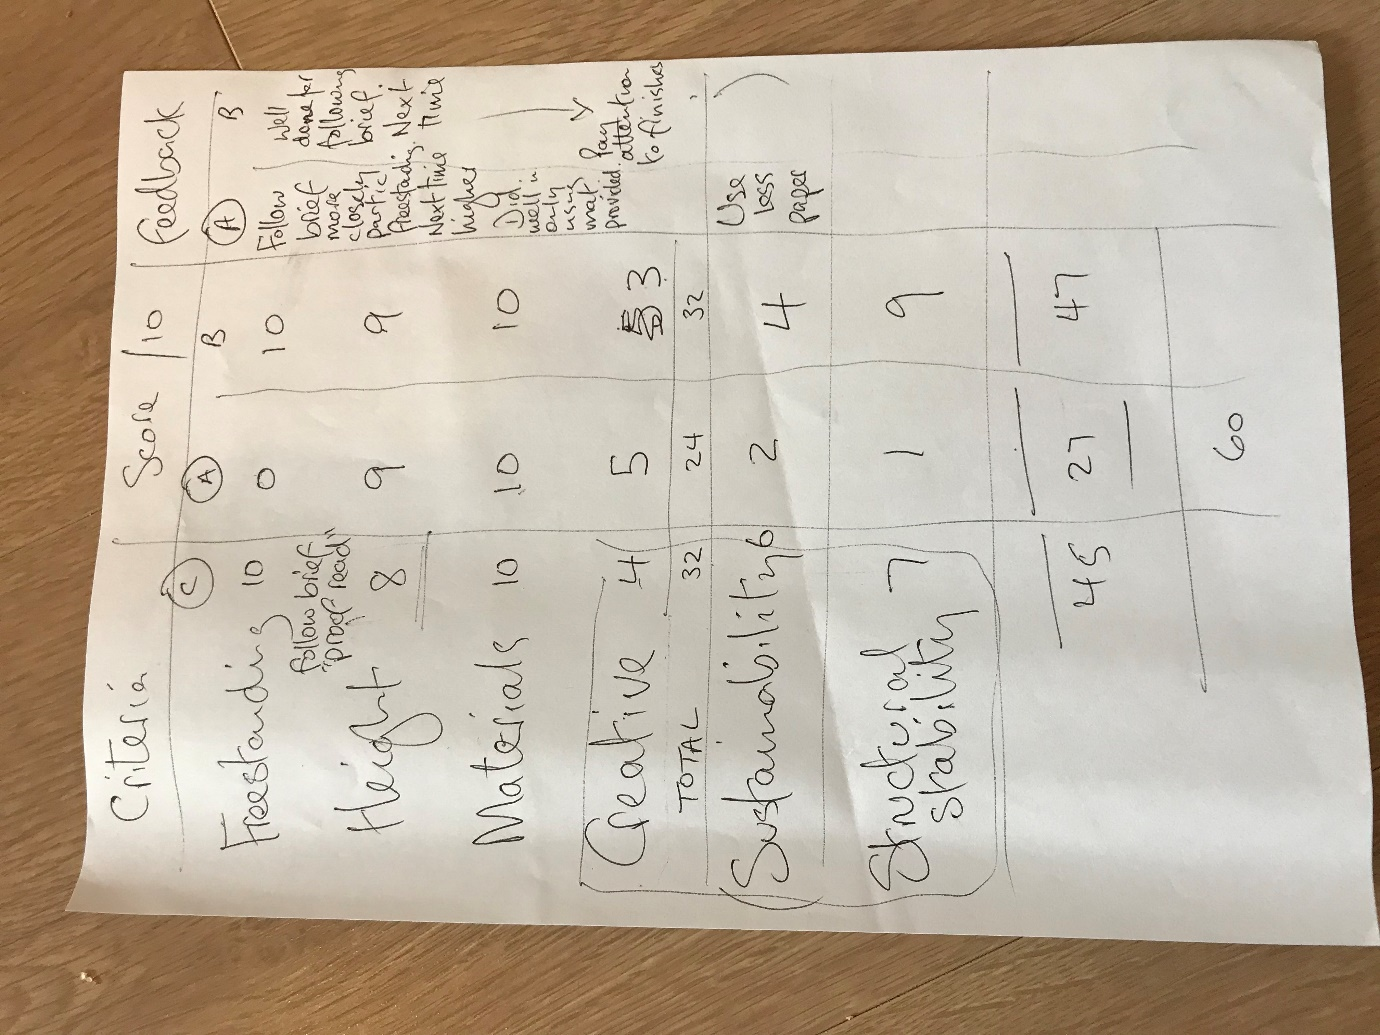 Criteria Score /10 Feedback
C A B A B
Freestanding 10 0 10 Follow brief more closely partic freestanding. Next time higher Well done for following brief. Next time
follow brief
"proof read"
Height 8 9 9
Materials 10 10 10 Did well in only using mat provided. Pay attention to finishes
Creative 4 5 3
TOTAL 32 24 32
(Sustainability 6 2 4 Use less paper )
Structural stability 7 1 9
45 27 47
60